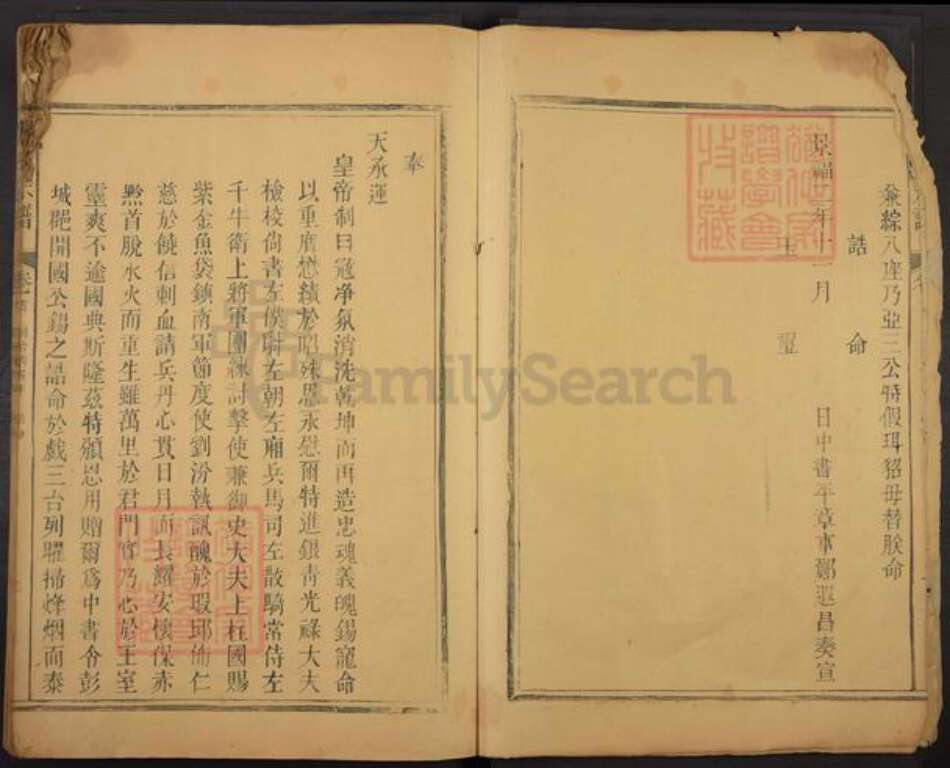 兼綜八座乃亞三公特假珥貂毋替朕命
誥命
景福二年十一月 日中書平章事鄭延昌奏宣
主璽
奉
天承運
皇帝制曰寇净氛消洗乾坤而再造忠魂義魄錫寵命
以重膺懋績於昭殊恩永慰爾特進銀青光祿大夫
檢校尚書左僕射左朝左廂兵馬司左散騎常侍左
千牛衛上將軍團練討擊使兼御史大夫上柱國賜
紫金魚袋鎮南軍節度使劉汾執訊醜於瑕邱佈仁
慈於饒信刺血請兵丹心貫日月而長耀安懷保赤
黔首脫水火而重生雖萬里於君門實乃心於王室
靈爽不逾國典斯隆茲特頒恩用贈爾爲中書令彭
城郡開國公錫之誥命於戲三台列曜掃烽烟而泰
FamilySearch